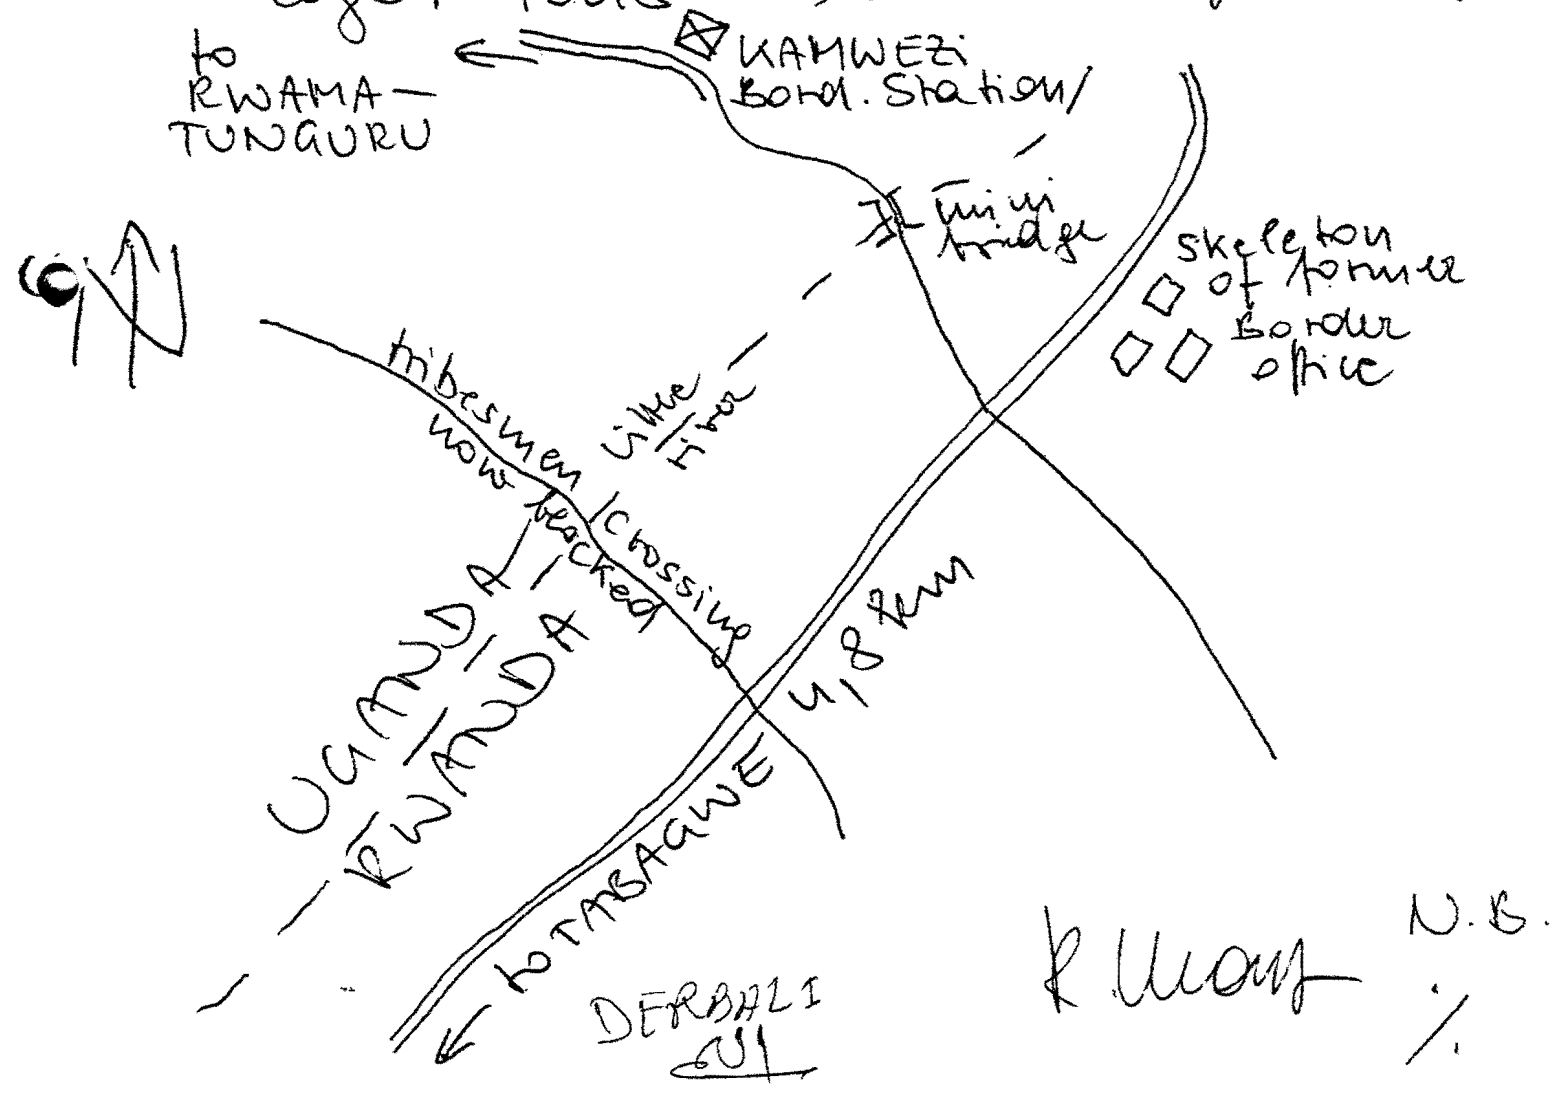 to
RWAMA-
TUNGURU
KAMWEZi
Bord. Station/
mini
bridge
N
Skeleton
of former
Border
office
tribesmen crossing
now blocked
little
river
UGANDA
RWANDA
4,8 km
to TABAGWE
DERBALI
N.B.
./.